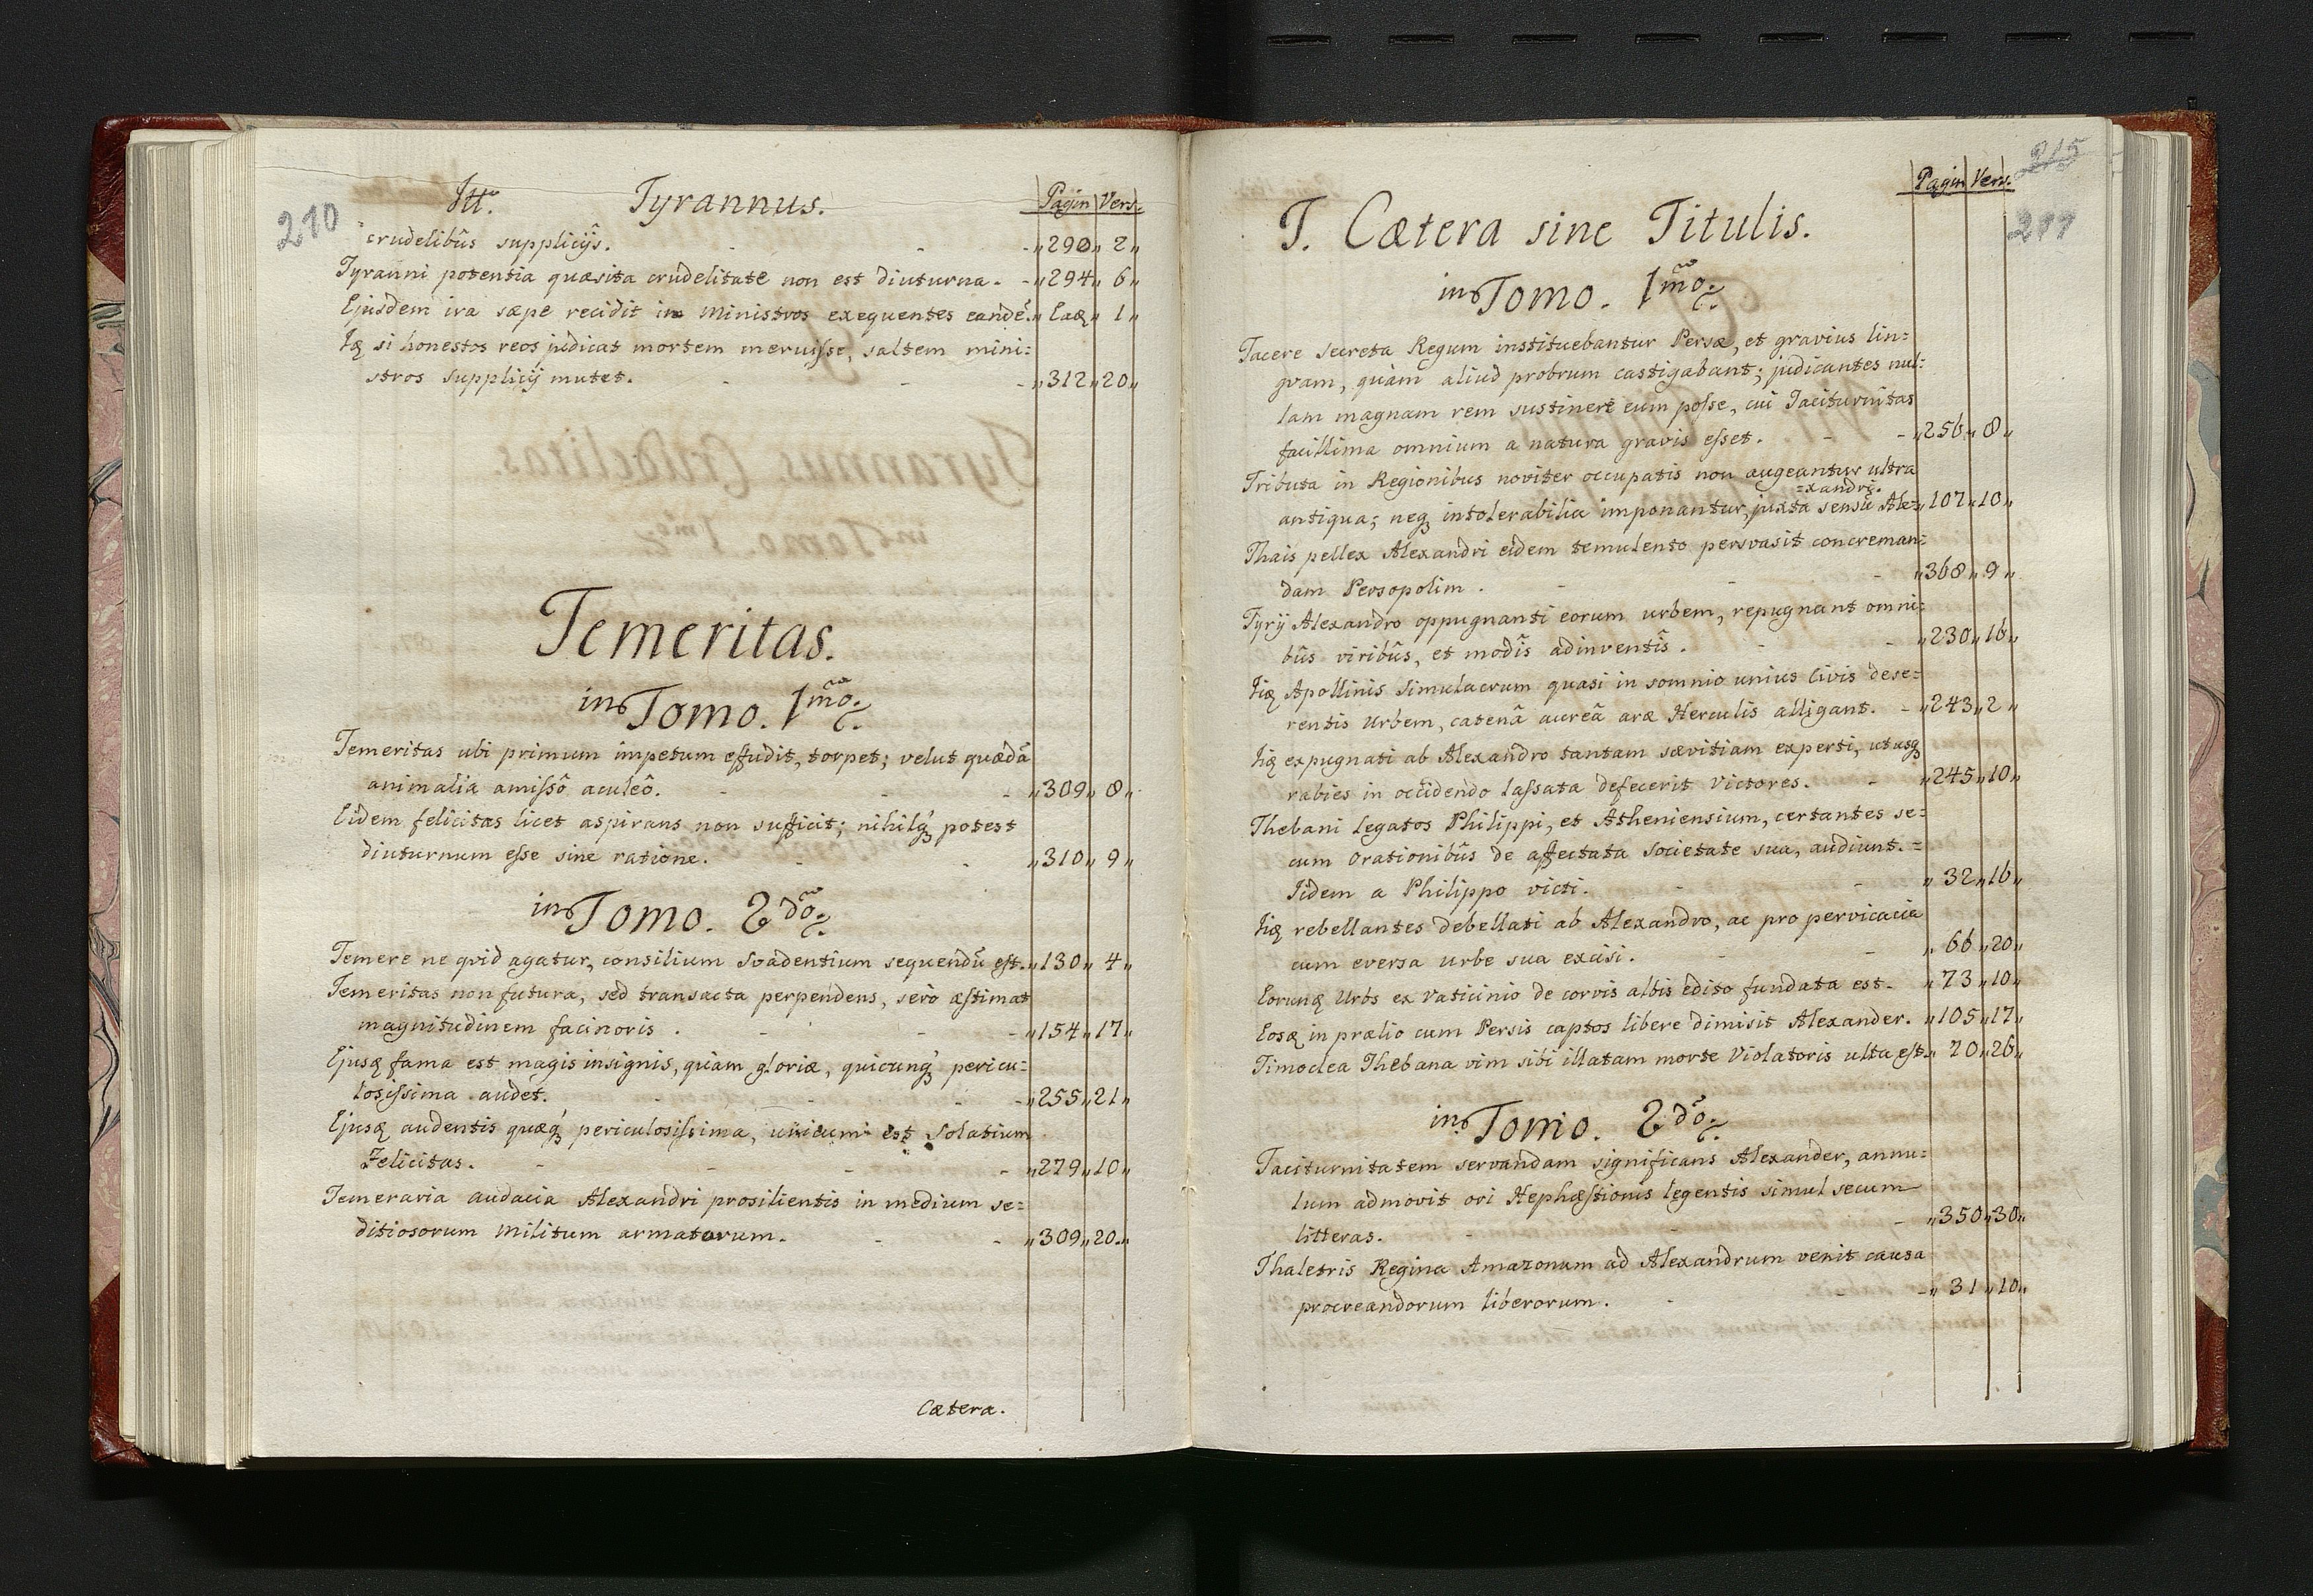 210
Itt. Tyrannus. Pagin Vers.
crudelibûs supplicijs. - - - „290„ 2„
Tyranni potentia quæsita crudelitate non est diuturna. - „294„ 6„
Ejusdem ira sæpe recidit in Ministros exequentes eandē. „Eaq„ 1„
Iq si honestos reos judicat mortem meruisse, saltem mini:
stros supplicij mutet. - - - „312„20„
Temeritas.
in Tomo. 1mo.
Temeritas ubi primum impetum effudit, torpet; velut quædā
animalia amissô aculeô. - - - „309„ 8„
Eidem felicitas licet aspirans non sufficit; nihilq potest
diuturnum esse sine ratione. - - „310„ 9„
in Tomo. 2do.
Temere ne qvid agatur, consilium svadentium sequendū est. „130„ 4„
Temeritas non futura, sed transacta perpendens, serò æstimat
magnitudinem facinoris. - - - „154„17„
Ejusq fama est magis insignis, quàm gloriæ, quicunq pericu:
losissima audet. - - - „255„21„
Ejusq audentis quæq periculosissima, unicum est solatium
Felicitas. - - - - „279„10„
Temeraria audacia Alexandri prosilientis in medium se:
ditiosorum militum armatorum. - - „309„20„
Cætera.
215
Pagin Vers.
211
T. Cætera sine Titulis.
in Tomo. 1mo.
Tacere secreta Regum instituebantur Persæ, et gravius lin:
gvam, quàm aliud probrum castigabant; judicantes nul:
lam magnam rem sustinere eum posse, cui Taciturnitas
facillima omnium a natura gravis esset. - - „256„ 8„
Tributa in Regionibus noviter occupatis non augeantur ultra
=xandri.
antiqua; neq intolerabilia imponantur, juxta sensū Ale= „107„10„
Thais pellex Alexandri eidem temulento persvasit concreman:
dam Persopolim. - - - „368„ 9„
Tyrij Alexandro oppugnanti eorum urbem, repugnant omni:
bûs viribûs, et modîs adinventîs. - - „230„16„
Iiq Apollinis simulacrum quasi in somnio unius Civis dese:
rentis urbem, catenâ aureâ aræ Herculis alligant. - „243„2„
Iiq expugnati ab Alexandro tantam sævitiam experti, utusq
rabies in occidendo lassata defecerit victores. - „245„10„
Thebani legatos Philippi, et Atheniensium, certantes se:
cum orationibûs de affectata societate sua, audiunt. =
Iidem a Philippo victi. - - „ 32„16„
Iiq rebellantes debellati ab Alexandro, ac pro pervicacia
cum eversa urbe sua excisi. - - „ 66„20„
Eorunq Urbs ex vaticinio de corvis albis edito fundata est. „ 73„10„
Eosq in prælio cum Persis captos libere dimisit Alexander. „105„17„
Timoclea Thebana vim sibi illatam morte Violatoris ulta est. „ 70„26„
in Tomo. 2do.
Taciturnitatem servandam significans Alexander, annu:
lum admovit ori Hephæstionis legentis simul secum
litteras. - - - „350„30„
Thalestris Regina Amazonum ad Alexandrum venit causa
procreandorum liberorum. - - - „ 31„10„